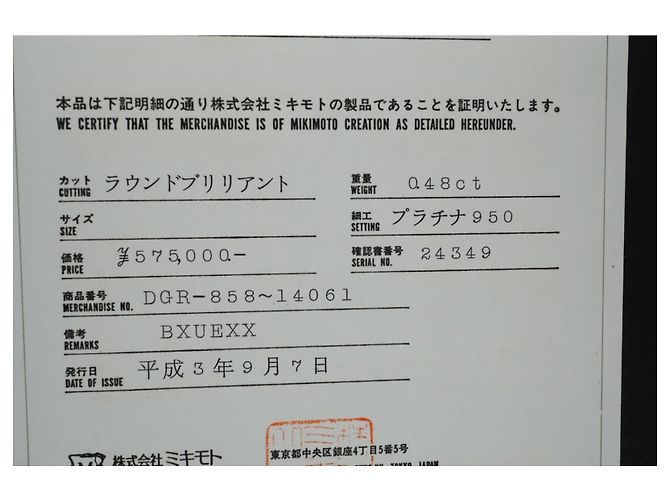 本品は下記明細の通り株式会社ミキモトの製品であることを証明いたします。
WE CERTIFY THAT THE MERCHANDISE IS OF MIKIMOTO CREATION AS DETAILED HEREUNDER.
カット ラウンドブリリアント 重量 0.48ct
CUTTING WEIGHT
サイズ 細工 プラチナ950
SIZE SETTING
価格 ¥575,000.- 確認書番号 24349
PRICE SERIAL NO.
商品番号 DGR-858~14061
MERCHANDISE NO.
備考 BXUEXX
REMARKS
発行日 平成3年9月7日
DATE OF ISSUE
株式会社ミキモト 東京都中央区銀座4丁目5番5号
TOKYO, JAPAN